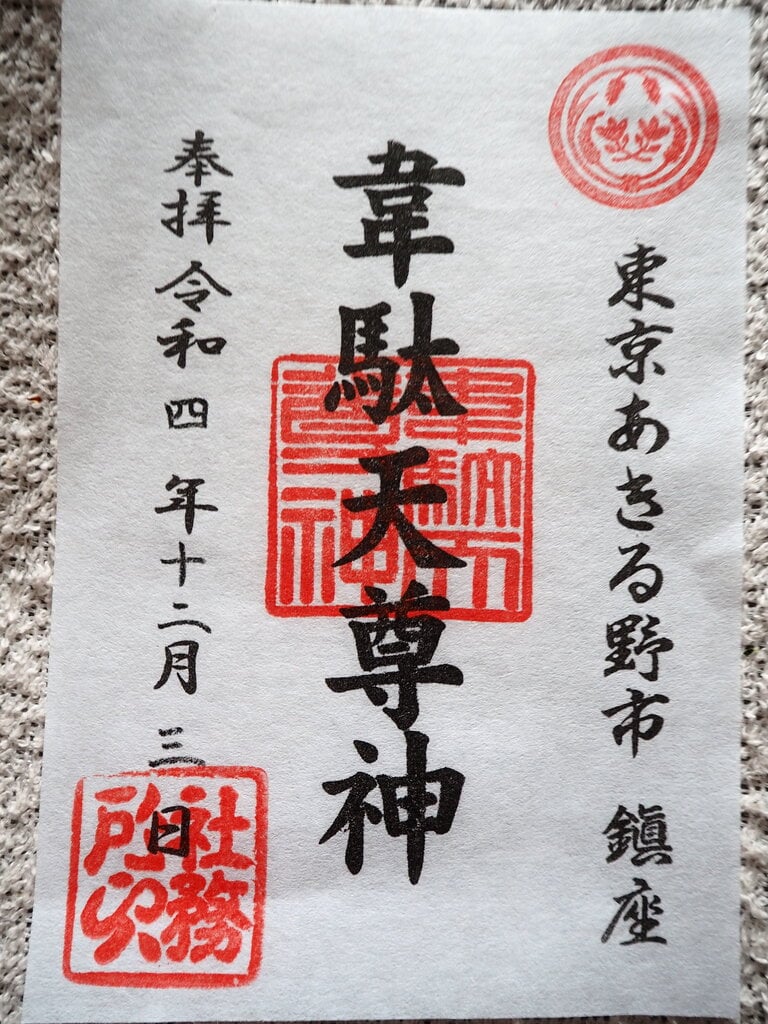 東京あきる野市 鎮座
韋駄天尊神
奉拝 令和四年十二月三日
韋駄天尊神
社務所印